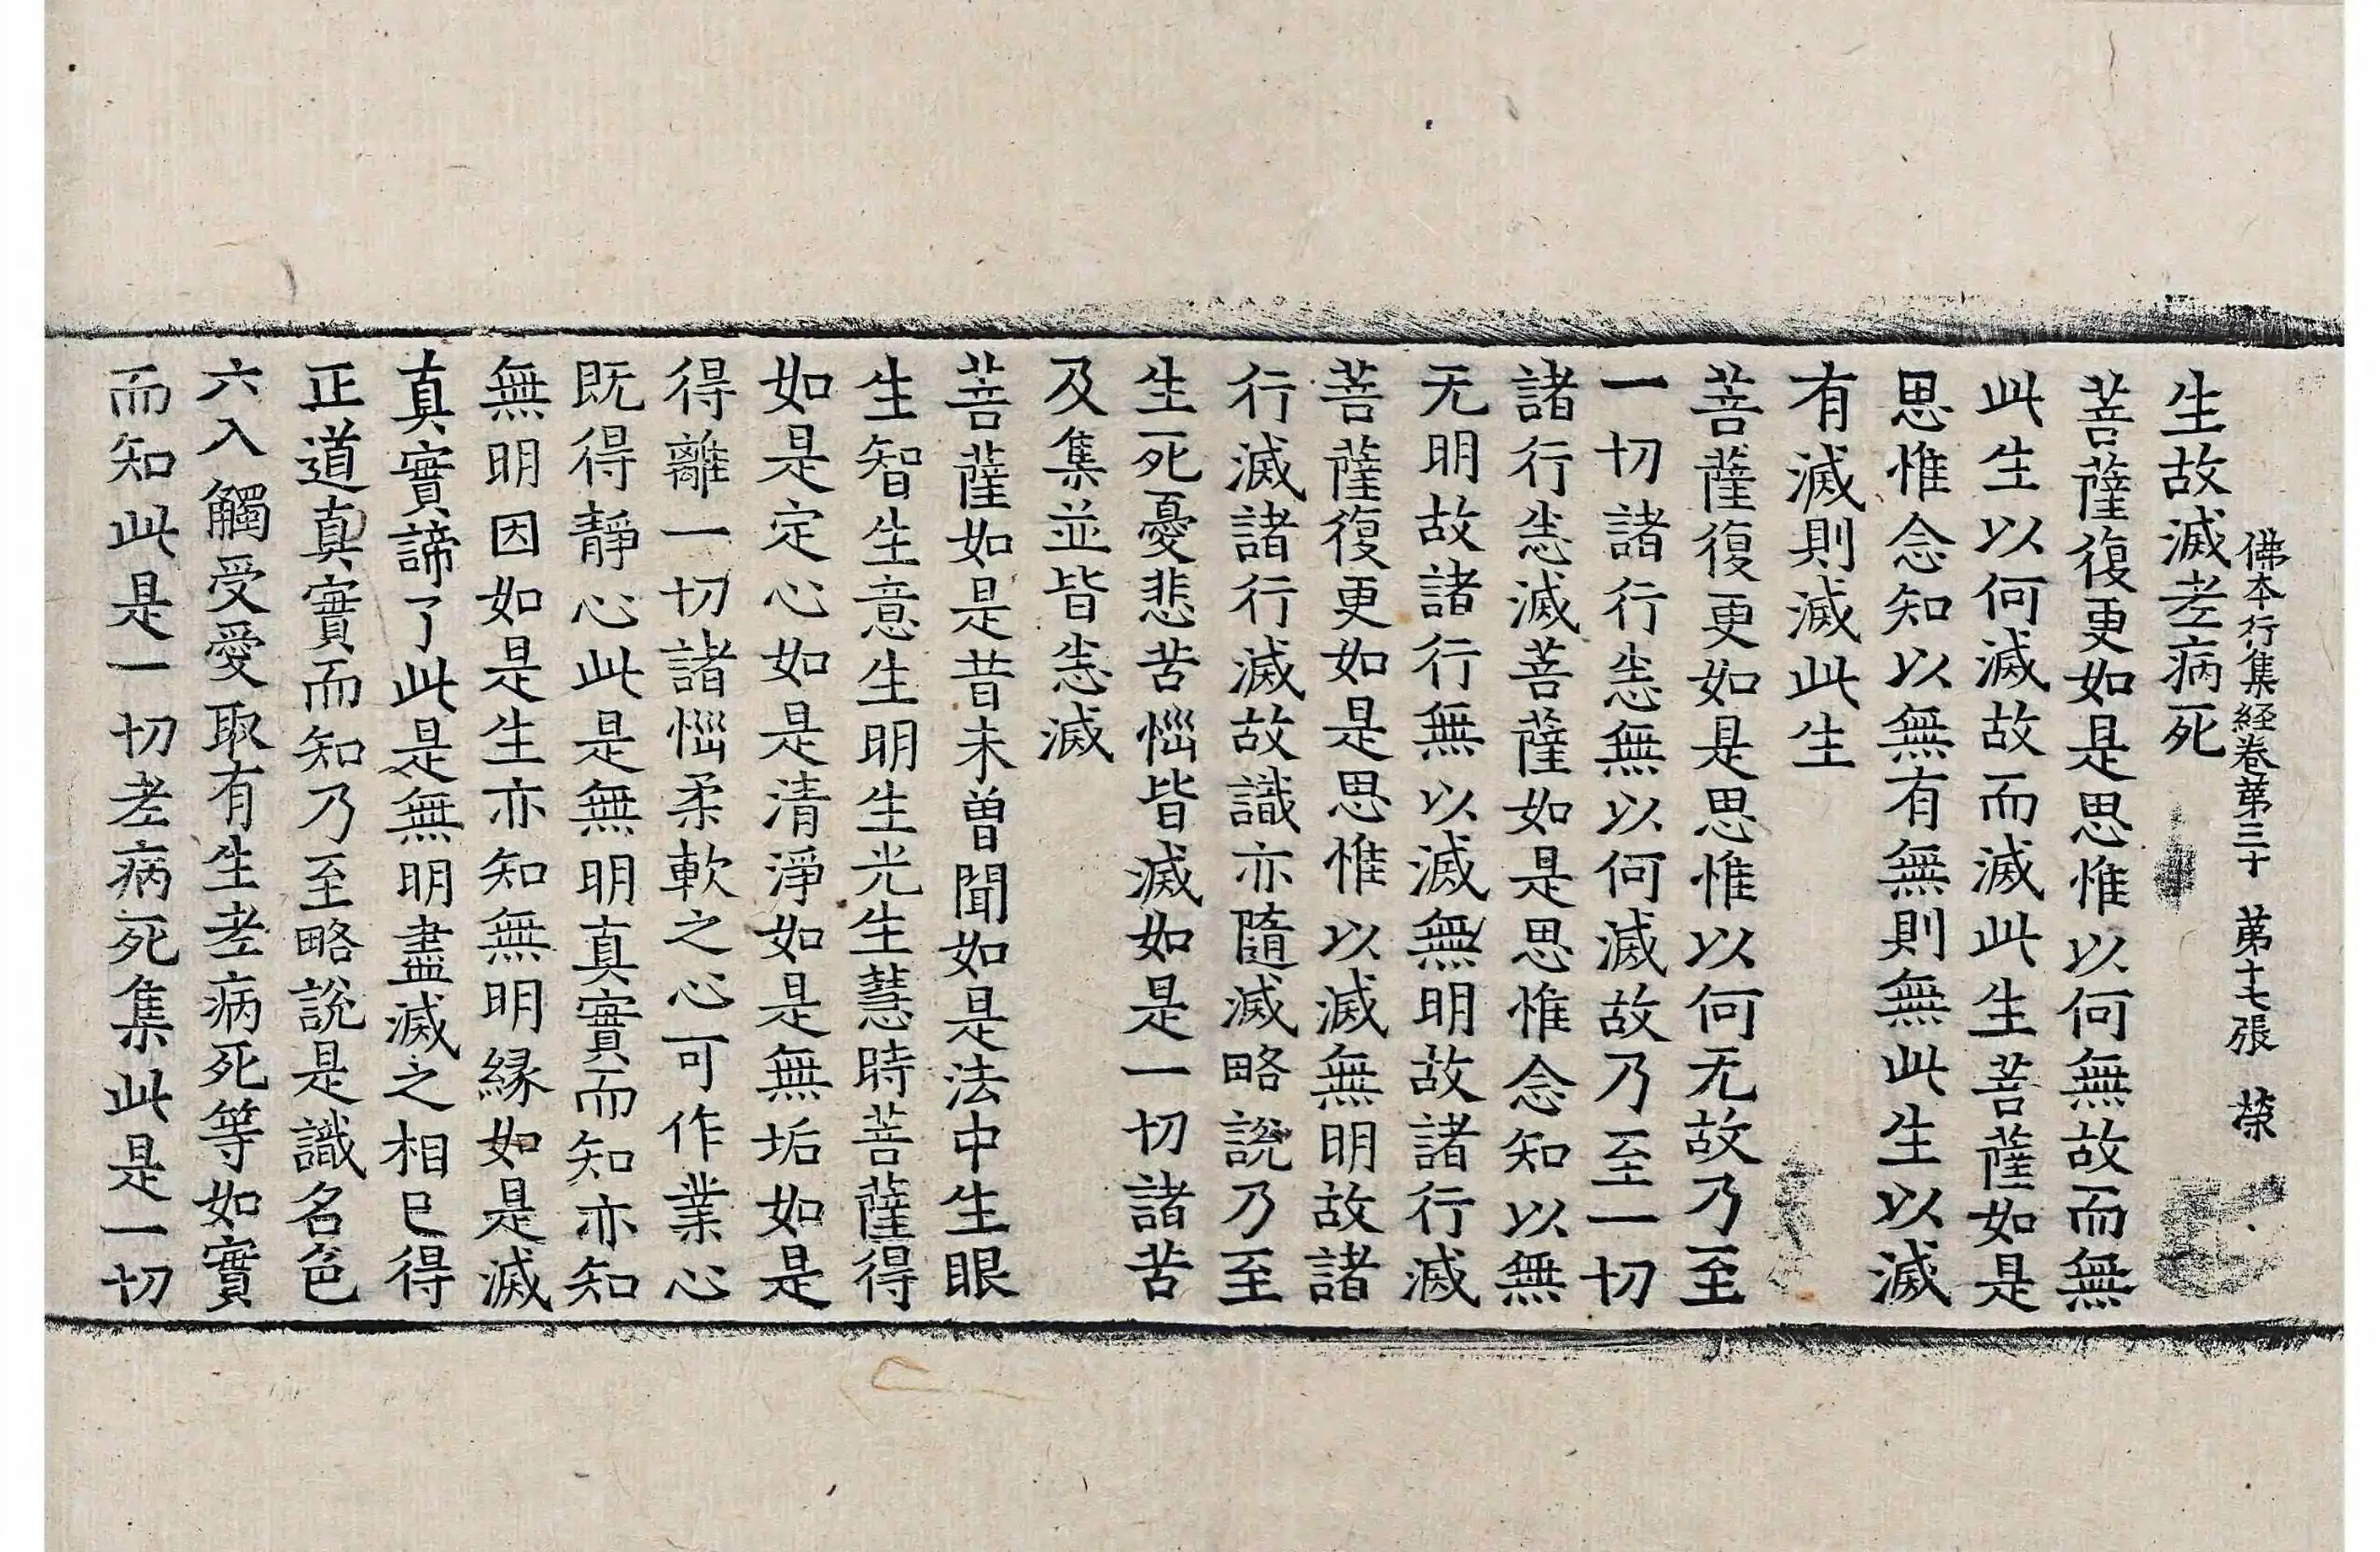 佛本行集経卷苐三十　苐十七張　榮
生故滅老病死
菩薩復更如是思惟以何無故而無
此生以何滅故而滅此生菩薩如是
思惟念知以無有無則無此生以滅
有滅則滅此生
菩薩復更如是思惟以何无故乃至
一切諸行恙無以何滅故乃至一切
諸行恙滅菩薩如是思惟念知以無
无明故諸行無以滅無明故諸行滅
菩薩復更如是思惟以滅無明故諸
行滅諸行滅故識亦隨滅略說乃至
生死憂悲苦惱皆滅如是一切諸苦
及集並皆恙滅
菩薩如是昔未曽聞如是法中生眼
生智生意生明生光生慧時菩薩得
如是定心如是清淨如是無垢如是
得離一切諸惱柔軟之心可作業心
既得靜心此是無明真實而知亦知
無明因如是生亦知無明縁如是滅
真實諦了此是無明盡滅之相已得
正道真實而知乃至略說是識名色
六入觸受愛取有生老病死等如實
而知此是一切老病死集此是一切